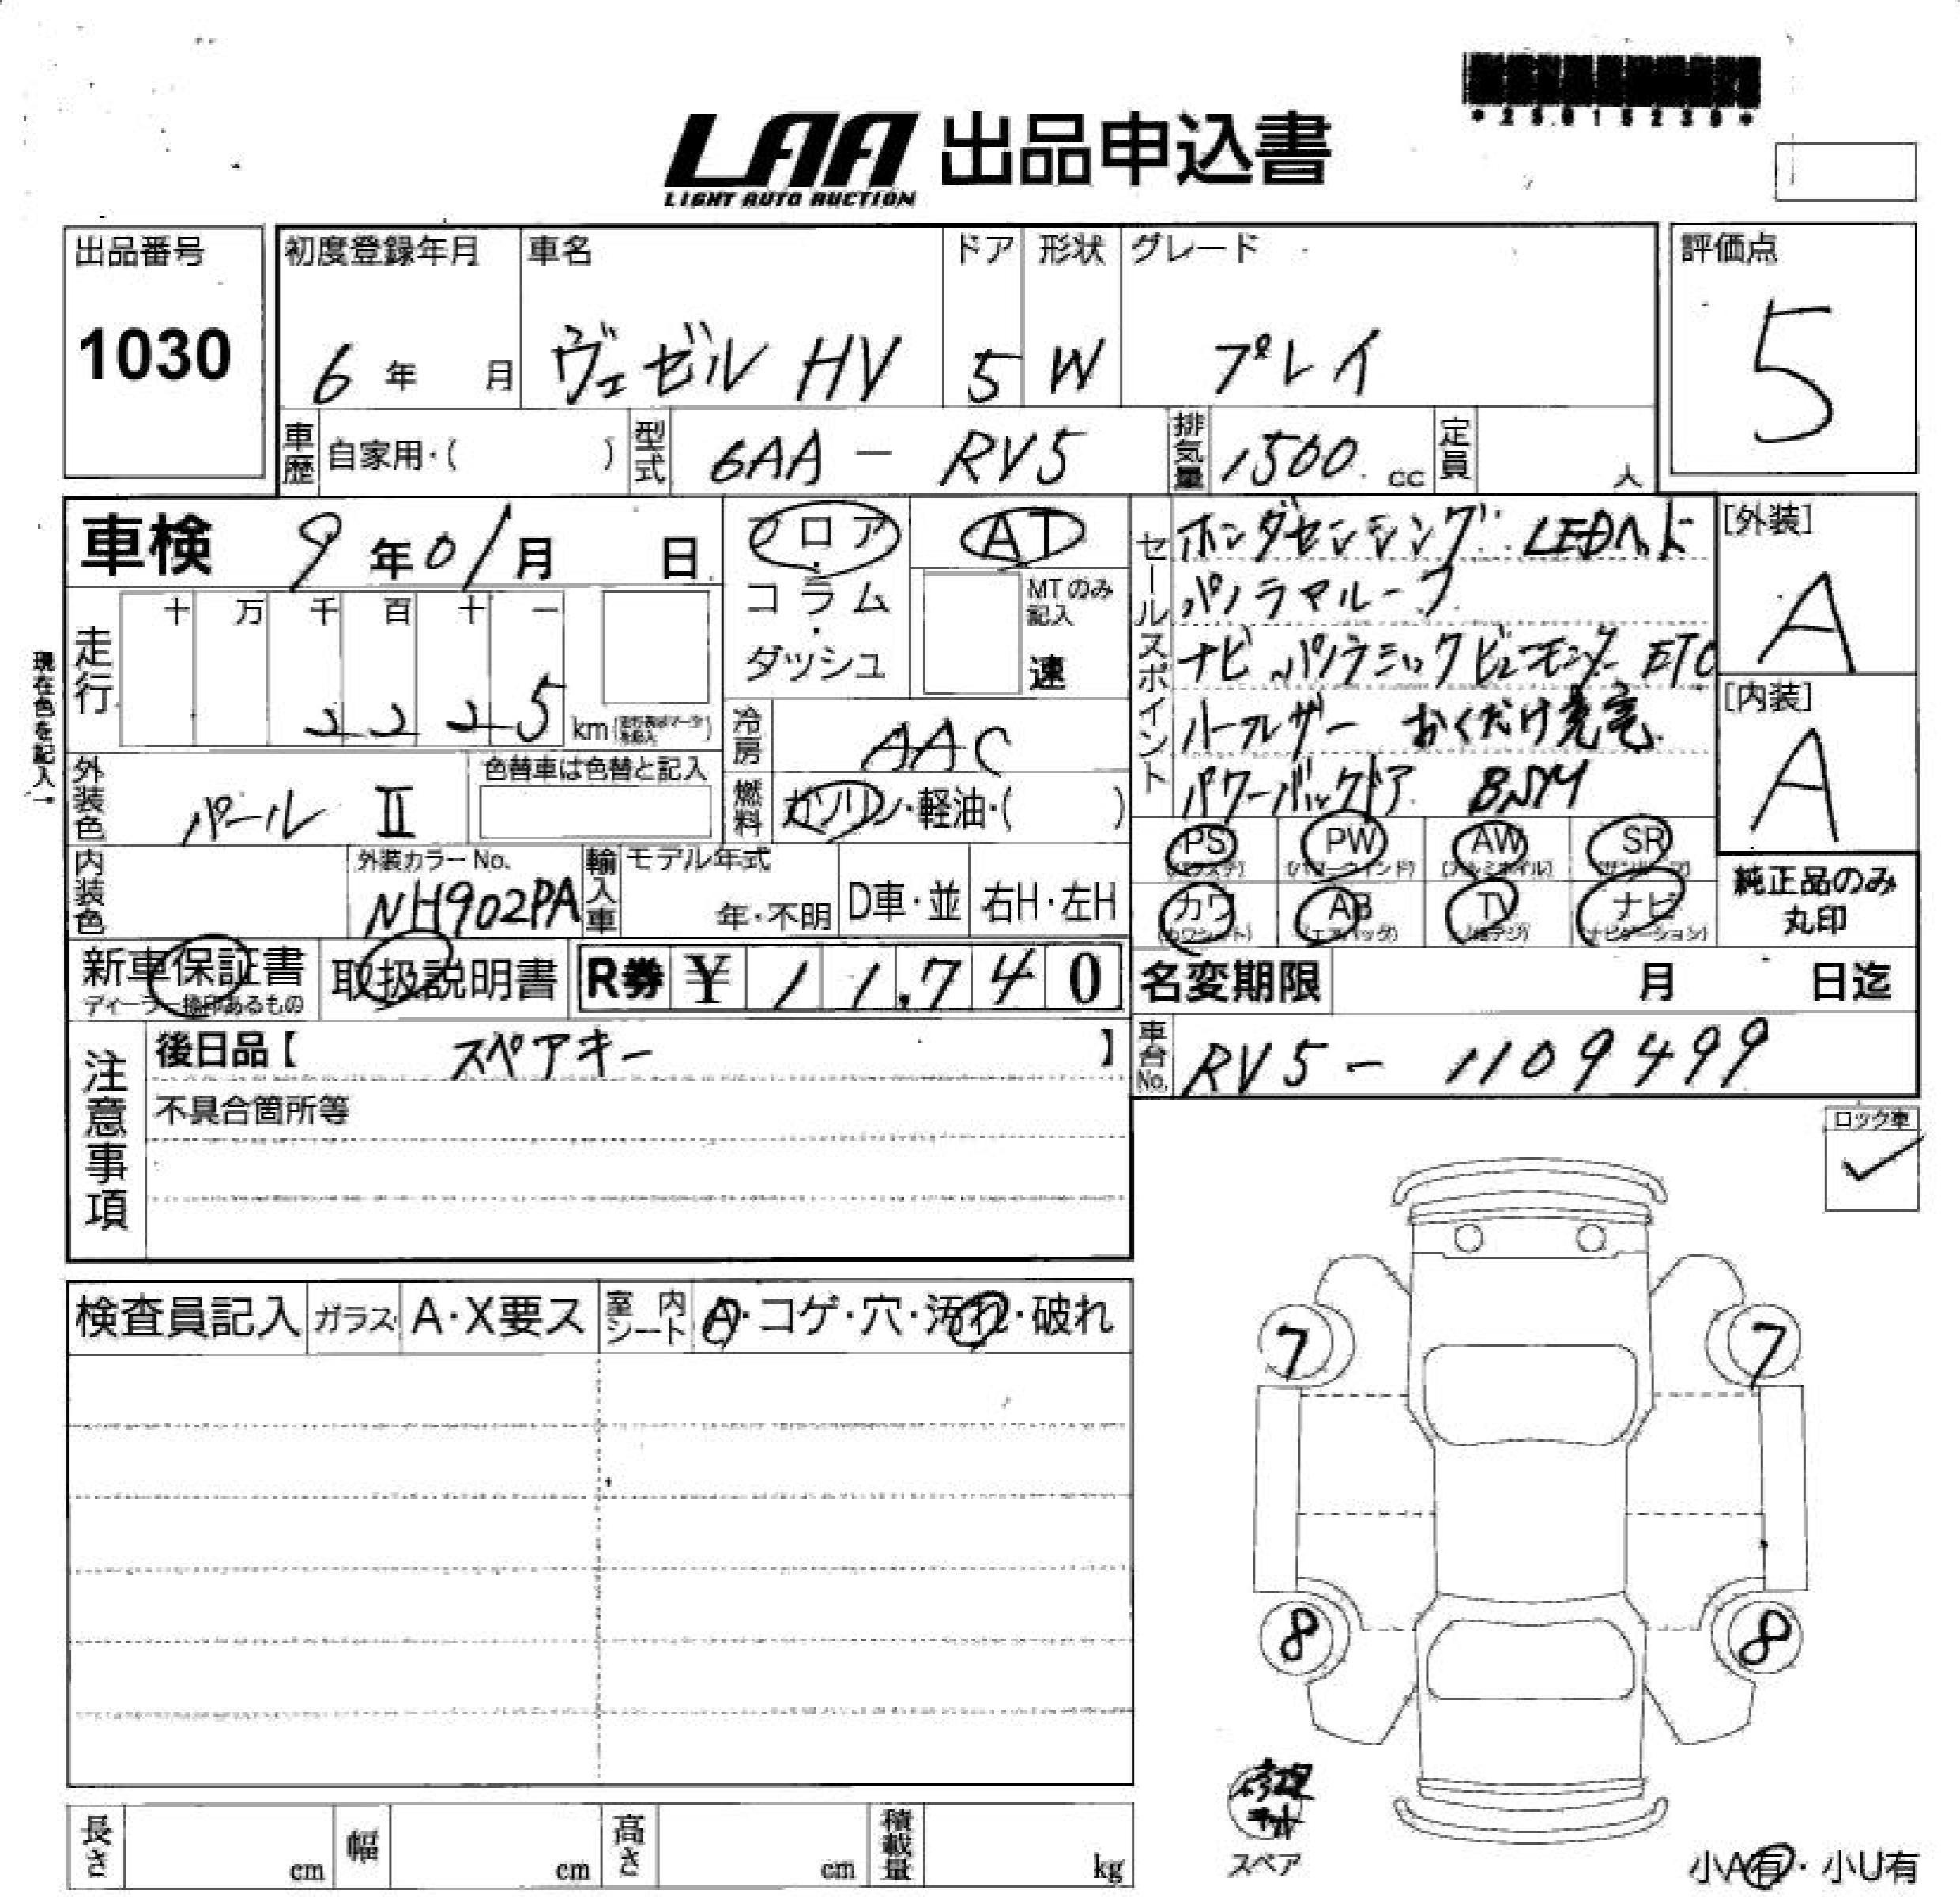 LAA 出品申込書
LIGHT AUTO AUCTION
出品番号 初度登録年月 車名 ドア 形状 グレード 評価点
1030 6 年 月 ヴェゼル HV 5 W プレイ 5
車歴 自家用・( ) 型式 6AA - RV5 排気量 1500 cc 定員 人
車検 9 年 01 月 日 フロア・コラム・ダッシュ AT MTのみ記入 速
走行 十 万 千 百 十 一
2 2 2 5 km
現在色を記入→
冷房 AAC
外装色 パール Ⅱ 色替車は色替と記入
燃料 ガソリン・軽油・( )
内装色 外装カラーNo. NH902PA 輸入車 モデル年式 年・不明 D車・並 右H・左H
セールスポイント
ホンダセンシング LEDヘッド
パノラマルーフ
ナビ パノラミックビューモニター ETC
ハーフレザー おくだけ充電
パワーバックドア BSM
[外装] A
[内装] A
PS (パワステ) PW (パワーウインド) AW (アルミホイル) SR (サンルーフ)
カワ (カワシート) AB (エアバッグ) TV (地デジ) ナビ (ナビゲーション)
純正品のみ丸印
新車保証書 ディーラー捺印あるもの 取扱説明書 R券 ¥ 11,740
名変期限 月 日迄
注意事項
後日品【 スペアキー 】
不具合箇所等
車台No. RV5 - 1109499
ロック車
検査員記入 ガラス A・X要ス 室内シート A・コゲ・穴・汚れ・破れ
7 7
8 8
修理キット
スペア
長さ cm 幅 cm 高さ cm 積載量 kg
小A有・小U有